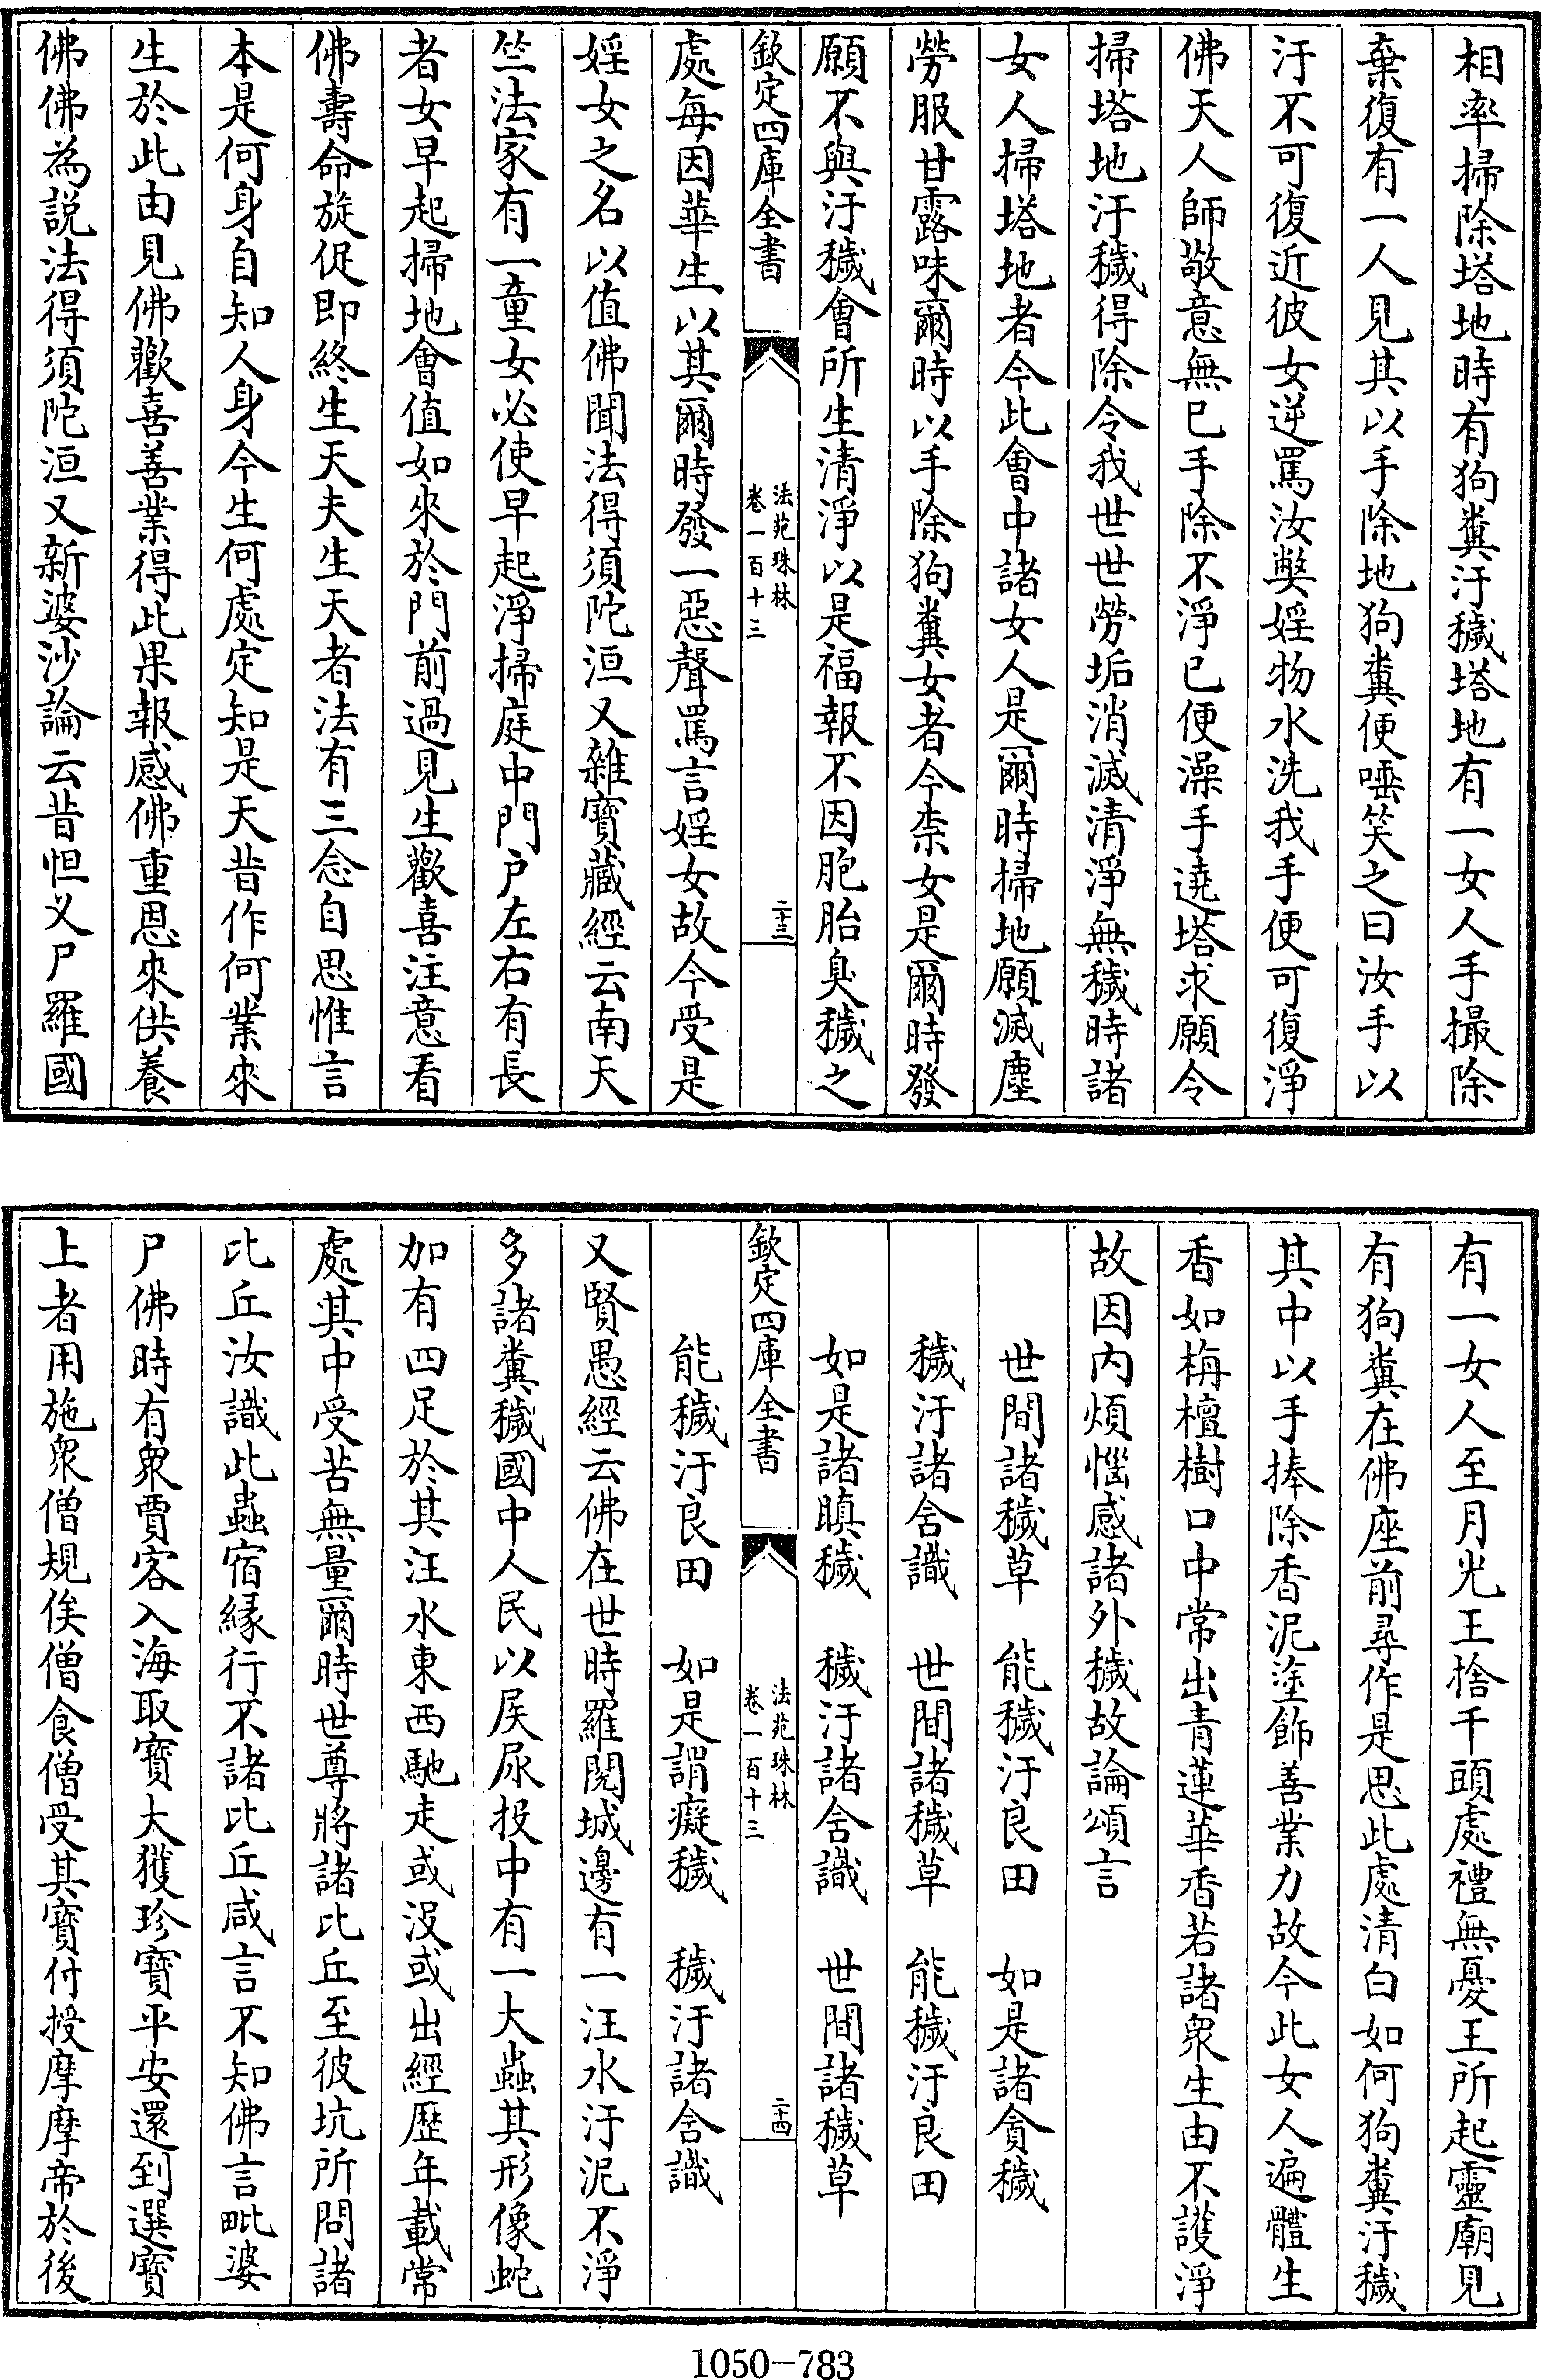 相率掃除塔地時有狗糞汙穢塔地有一女人手撮除
棄復有一人見其以手除地狗糞便唾笑之曰汝手以
汙不可復近彼女逆罵汝弊婬物水洗我手便可復淨
佛天人師敬意無已手除不淨已便澡手遶塔求願令
掃塔地汙穢得除令我世世勞垢消滅清淨無穢時諸
女人掃塔地者今此會中諸女人是爾時掃地願滅塵
勞服甘露味爾時以手除狗糞女者今柰女是爾時發
願不與汙穢會所生清淨以是福報不因胞胎臭穢之
欽定四庫全書
法苑珠林
卷一百十三
二十三
處每因華生以其爾時發一惡聲罵言婬女故今受是
婬女之名以值佛聞法得須陀洹又雜寶藏經云南天
竺法家有一童女必使早起淨掃庭中門户左右有長
者女早起掃地會值如來於門前過見生歡喜注意看
佛壽命旋促即終生天夫生天者法有三念自思惟言
本是何身自知人身今生何處定知是天昔作何業來
生於此由見佛歡喜善業得此果報感佛重恩來供養
佛佛為説法得須陀洹又新婆沙論云昔怛义尸羅國
有一女人至月光王捨千頭處禮無憂王所起靈廟見
有狗糞在佛座前尋作是思此處清白如何狗糞汙穢
其中以手捧除香泥塗飾善業力故今此女人遍體生
香如栴檀樹口中常出青蓮華香若諸衆生由不護淨
故因内煩惱感諸外穢故論頌言
世間諸穢草　能穢汙良田　如是諸貪穢
穢汙諸含識　世間諸穢草　能穢汙良田
如是諸瞋穢　穢汙諸含識　世間諸穢草
欽定四庫全書
法苑珠林
卷一百十三
二十四
能穢汙良田　如是謂癡穢　穢汙諸含識
又賢愚經云佛在世時羅閱城邊有一汪水汙泥不淨
多諸糞穢國中人民以屎尿投中有一大蟲其形像蛇
加有四足於其汪水東西馳走或没或出經歷年載常
處其中受苦無量爾時世尊將諸比丘至彼坑所問諸
比丘汝識此蟲宿緣行不諸比丘咸言不知佛言毗婆
尸佛時有衆賈客入海取寶大獲珍寶平安還到選寶
上者用施衆僧規俟僧食僧受其寶付授摩摩帝於後
1050-783